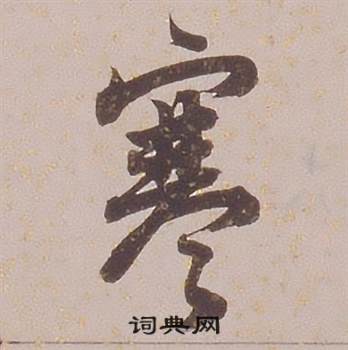 寒
词典网